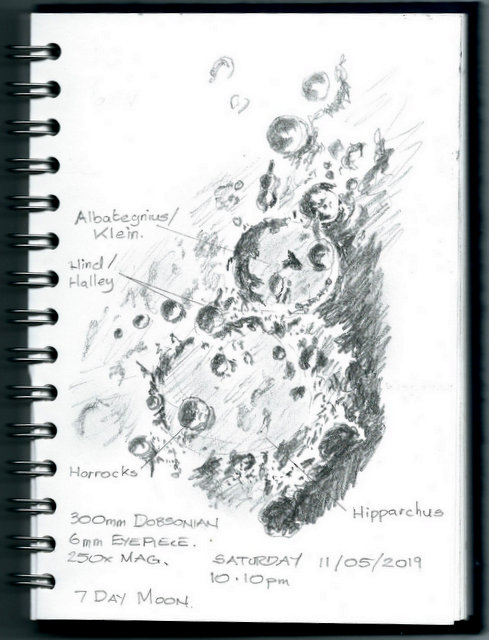 Albategnius/
Klein.
Hind/
Halley
Horrocks
Hipparchus
300mm DOBSONIAN
6mm EYEPIECE.
250x MAG.
SATURDAY 11/05/2019
10.10pm
7 DAY MOON.